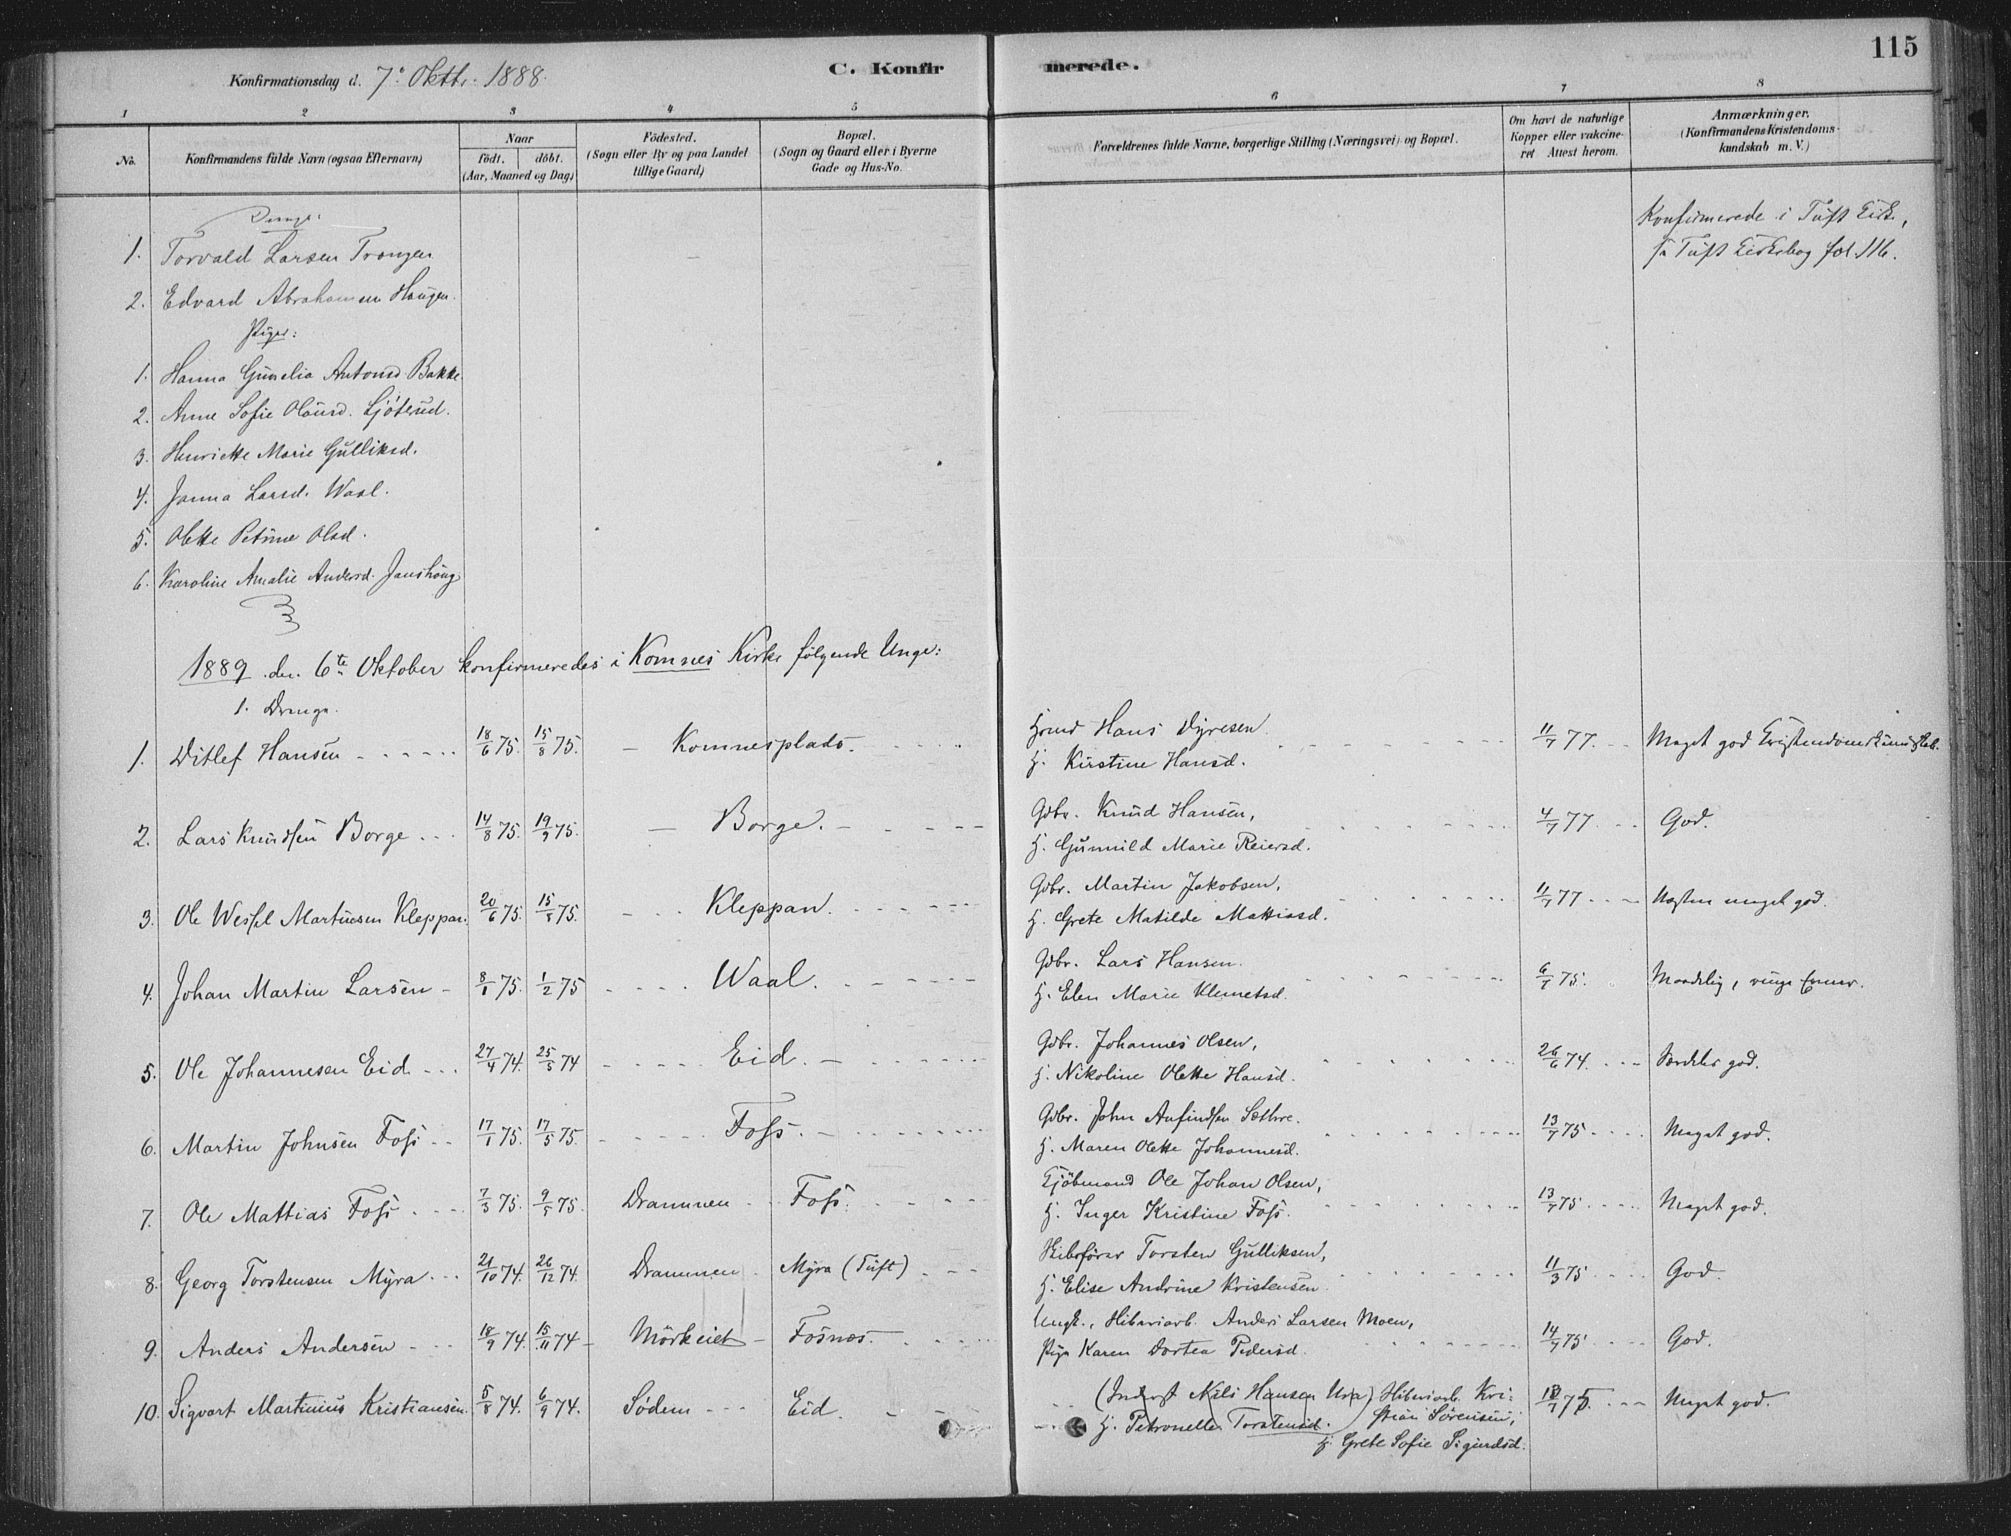 115
Konfirmationsdag d. 7de Oktbr. 1888.
C. Konfirmerede.
1 2 3 4 5 6 7 8
No.
Konfirmandens fulde Navn (ogsaa Efternavn)
Naar
födt. döbt.
(Aar, Maaned og Dag)
Födested.
(Sogn eller By og paa Landet
tillige Gaard)
Bopæl.
(Sogn og Gaard eller i Byerne
Gade og Hus-No.
Forældrenes fulde Navne, borgerlige Stilling (Næringsvei) og Bopæl.
Om havt de naturlige
Kopper eller vakcine-
ret Attest herom.
Anmærkninger.
(Konfirmandens Kristendoms-
kundskab m. V.)
Drenge:
1. Torvald Larsen Trongen
Konfirmerede i Tuft Kirk.,
se Tuft Kirkebog fol. 116.
2. Edvard Abrahamsen Haugen.
Piger:
1. Hanna Gunelia Antonsd. Bakke
2. Anne Sofie Olausd. Ljöterud.
3. Henriette Marie Gulliksd.
4. Janna Larsd. Waal.
5. Olette Petrine Olsd.
6. Karoline Amalie Andersd. Janshaug
1889 den 6te Oktober konfirmeredes i Komnes Kirke følgende Unge:
1. Drenge.
1. Ditlef Hansen 18/6 75. 15/8 75. Komnesplads. Hsmd Hans Dyresen H. Kirstine Hansd. 11/7 77. Meget god Kristendomskundskab.
2. Lars Knudsen Borge 14/8 75. 19/9 75. Borge. Gdbr. Knud Hansen, H. Gunnild Marie Reiersd. 4/7 77. God.
3. Ole Wessel Martinsen Kleppan. 20/6 75. 15/8 75. Kleppan. Gdbr. Martin Jakobsen, H. Grete Matilde Mattiasd. 11/7 77 Næsten meget god.
4. Johan Martin Larsen 8/1 75. 1/2 75 Waal. Gdbr. Lars Hansen. H. Elen Marie Klemetsd. 6/7 75. Maadelig, ringe Evner.
5. Ole Johannesen Eid 27/4 74. 25/5 74 Eid. Gdbr. Johannes Olsen, H. Nikoline Olette Hansd. 26/6 74. Særdeles god.
6. Martin Johnsen Foss 17/1 75. 17/5 75. Foss. Gdbr. John Anfindsen Sæthre. H. Maren Olette Johannesd. 13/7 75 Meget god.
7. Ole Mattias Foss 7/3 75. 9/5 75. Drammen Foss. Kjöbmand Ole Johan Olsen, H. Inger Kristine Foss. 13/7 75 Meget god.
8. Georg Torstensen Myra 21/10 74. 26/12 74. Drammen Myra (Tuft) Skibsförer Torsten Gulliksen, H. Elise Andrine Kristensen 11/3 75 God.
9. Anders Andersen 18/9 74. 15/11 74 Mörkeiet Fosnæs. Ungk., Anders Larsen Moen, Pige Karen Dortea Pedersd. 14/7 75 God.
10. Sigvart Martinius Kristiansen. 5/8 74. 6/9 74. Södem Eid. (Inderst Nils Hansen Ura) Kristian Sörensen; H. Petronelle Torstensd. H. Grete Sofie Sigurdsd. 75. Meget god.